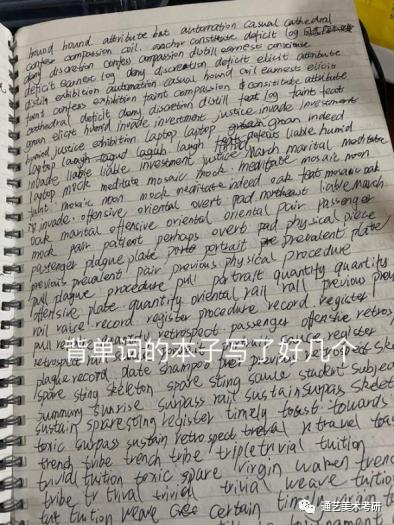 bound hound attribute bat automation casual cathedral
confer compassion coil. constitute deficit log
deny discretion confess compassion distill earnest constitute
deficit earnest log deny discretion deficit elicit attribute
distill exhibition automation casual hound oil earnest elicit
faint confess exhibition faint compassion constitute attribute
cathedral deficit deny discretion distill log faint feats
groan elicit humid invade investment justice invade investments
humid justice exhibition laptop laptop groan indeed
laptop laugh laugh feats deficits liable humid
invade liable liable investment justice March marital meditate
laptop mock meditate mosaic mock. meditate mosaic noon
faint. mosaic noon mock meditate indeed oak feat mosaic oak
invade. offensive oriental overt pad northeast liable March
oak marital offensive oriental oriental pair passenger
mock pair patient perhaps overt pad physical piece
passenger plague plate portrait prevalent plate
previous prevalent pair previous physical procedure
pull plague procedure pull portrait quantify quantify
offensive plate. quantify oriental rail rail previous
rail raise record register procedure record register
pull quantify retrospect passenger offensive retros
背单词的本子写了好几个
plague record date shampoo previous
spare sting skeleton spare sting sauce student subject
summum sunrise surpass rail sustain surpass skelet
sustain spare sting register timely toast towards
toxic surpass sustain retrospect travel toa
trench tribe trench tribe triple trivial tuition
trivial tuition toxic spare virgin women trend
tribe trivial trivial weave tuition
tuition weave certain
通艺美术考研